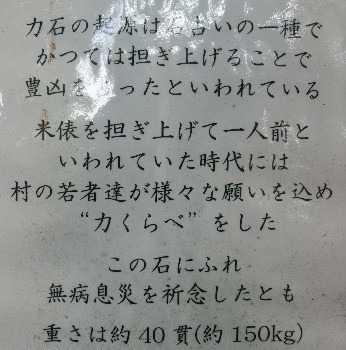 力石の起源は石占いの一種で
かつては担ぎ上げることで
豊凶を ったといわれている
米俵を担ぎ上げて一人前と
いわれていた時代には
村の若者達が様々な願いを込め
“力くらべ”をした
この石にふれ
無病息災を祈念したとも
重さは約40貫(約150kg)